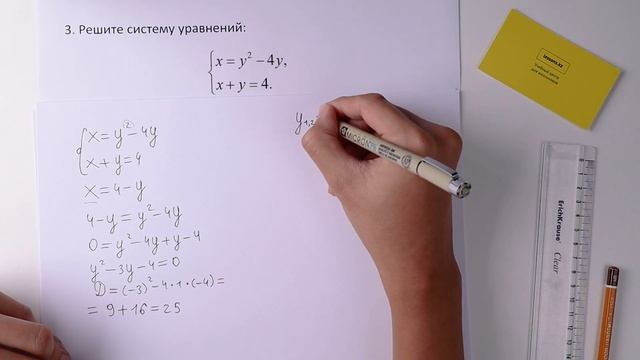 3. Решите систему уравнений:
x = y² − 4y,
x + y = 4.
x = y² − 4y
x + y = 4
x = 4 − y
4 − y = y² − 4y
0 = y² − 4y + y − 4
y² − 3y − 4 = 0
D = (−3)² − 4 · 1 · (−4) =
= 9 + 16 = 25
y₁,₂
MICRON
ErichKrause
Clear